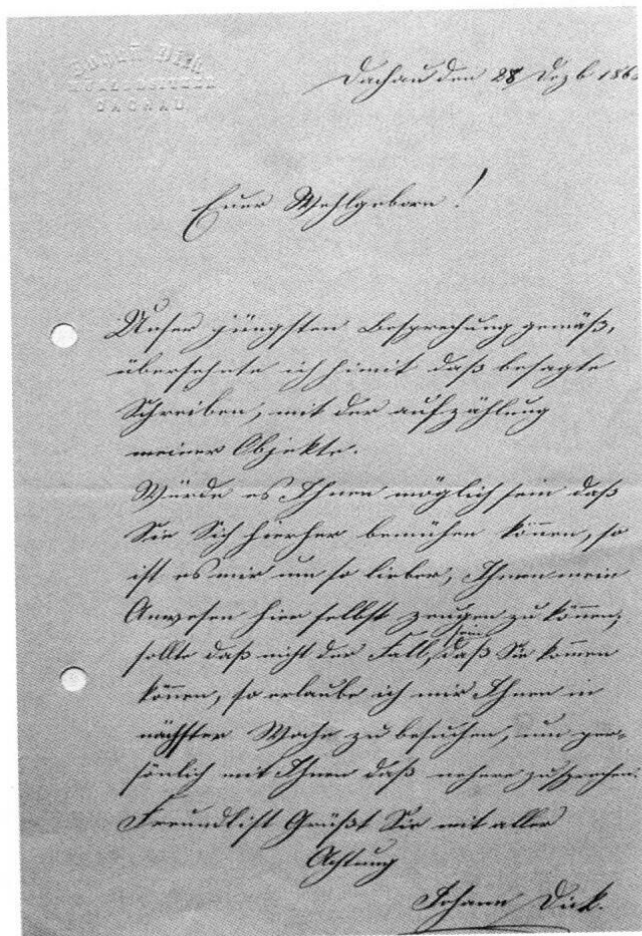 Johann Dick
MÜHLBESITZER
DACHAU
Dachau den 28 Dezb 186
Euer Wohlgeborn!
Unser jüngsten Besprechung gemäß,
übersehnte ich himit daß besagte
Schreiben, mit der aufzählung
meiner Objekte.
Würde es Ihnen möglich sein daß
Sie Sich hierher bemühen können, so
ist es mir um so lieber, Ihnen mein
Anwesen hier selbst zeugen zu können,
sollte daß nicht der Fall sein, daß Sie kommen
können, so erlaube ich mir Ihnen in
nächster Woche zu besuchen, um per-
sönlich mit Ihnen daß nehere zu sprechen.
Freundlist Grüßt Sie mit aller
Achtung
Johann Dick.